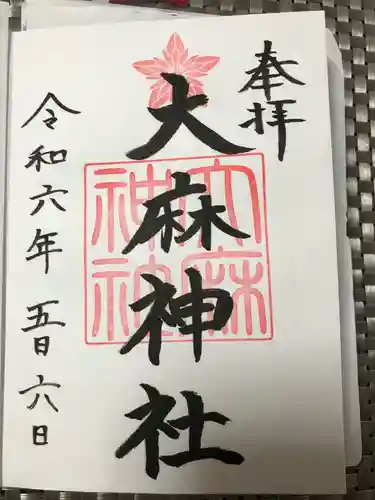 奉拝
大麻神社
大麻
神社
令和六年五月六日